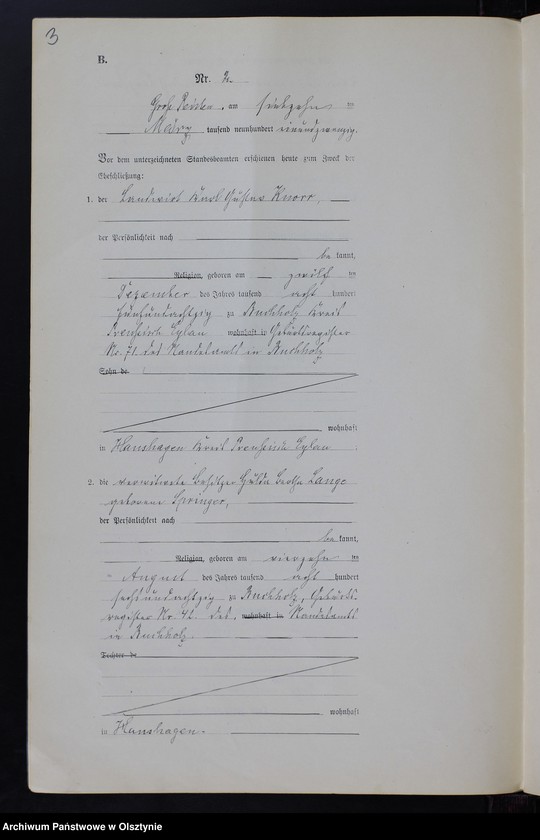 3
B.
Nr. 2.
Groß Peisten, am siebzehnten
März tausend neunhundert einundzwanzig.
Vor dem unterzeichneten Standesbeamten erschienen heute zum Zweck der
Eheschließung:
1. der Landwirt Karl Gustav Knorr,
der Persönlichkeit nach
be kannt,
Religion, geboren am zwölf ten
Dezember des Jahres tausend acht hundert
fünfundachtzig zu Buchholz Kreis
Preußisch Eylau wohnhaft in Geburtsregister
Nr. 71 des Standesamts in Buchholz
Sohn de
wohnhaft
in Hanshagen Kreis Preußisch Eylau
2. die verwitwete Besitzer Bertha Lange
geborene Springer,
der Persönlichkeit nach
be kannt,
Religion, geboren am vierzehn ten
August des Jahres tausend acht hundert
sechsundachtzig zu Buchholz, Geburts-
register Nr. 42 des wohnhaft in Standesamts
in Buchholz.
Tochter de
wohnhaft
in Hanshagen.
Archiwum Państwowe w Olsztynie